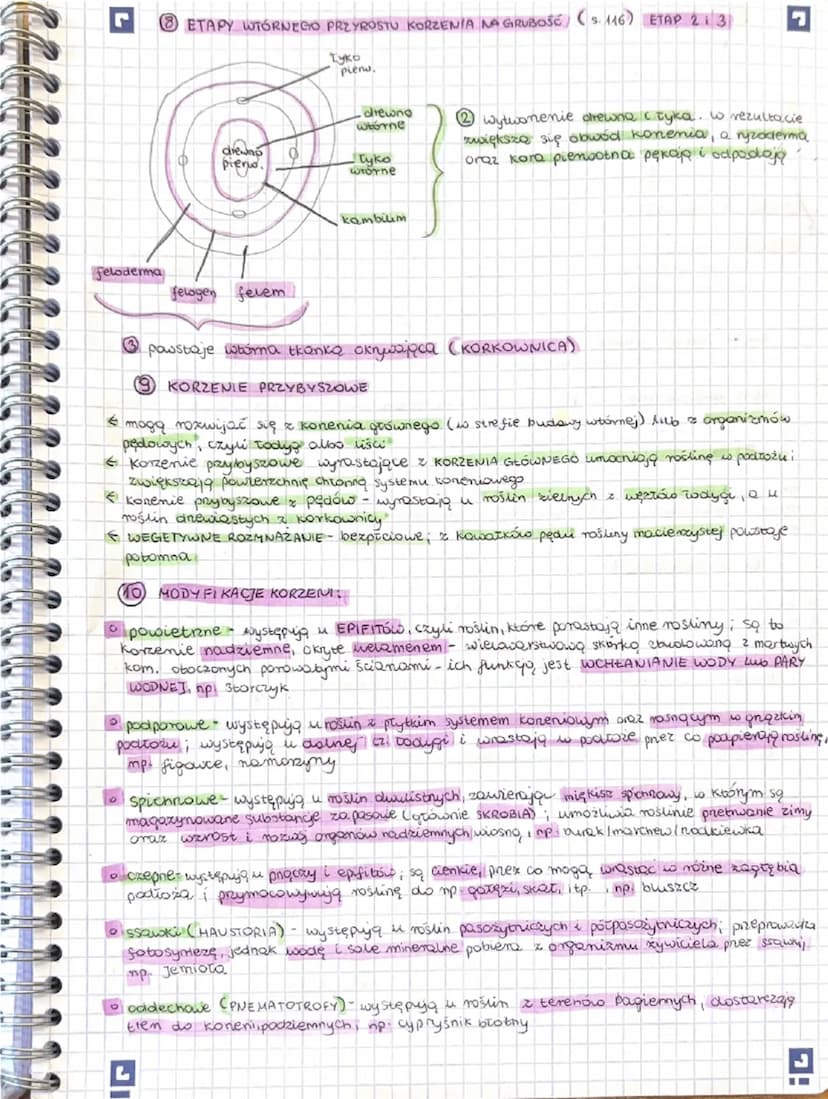 ⑧ ETAPY WTÓRNEGO PRZYROSTU KORZENIA NA GRUBOŚĆ (s. 116) ETAP 2 i 3
łyko
pierw.
drewno
wtórne
drewno
pierw.
łyko
wtórne
kambium
② wytworzenie drewna i łyka. w rezultacie
zwiększa się obwód korzenia, a ryzoderma
oraz kora pierwotna pękają i odpadają
feloderma
felogen
felem
③ powstaje wtórna tkanka okrywająca (KORKOWNICA)
⑨ KORZENIE PRZYBYSZOWE
← mogą rozwijać się z korzenia głównego (w strefie budowy wtórnej) lub z organizmów
pędowych, czyli łodyg albo liści
← korzenie przybyszowe wyrastające z KORZENIA GŁÓWNEGO umocniają roślinę w podłożu i
zwiększają powierzchnię chłonną systemu korzeniowego
← korzenie przybyszowe z pędów - wyrastają u roślin zielnych z węzłów łodygi, a u
roślin drewiastych z korkownicy
← WEGETYWNE ROZMNAŻANIE - bezpłciowe; z kawałków pędu rośliny macierzystej powstaje
potomna
⑩ MODYFIKACJE KORZENI:
powietrzne - występują u EPIFITÓW, czyli roślin, które porastają inne rośliny; są to
korzenie nadziemne, okryte welamenem - wielowarstwową skórką zbudowaną z martwych
kom. otoczonych porowatymi ścianami - ich funkcją jest WCHŁANIANIE WODY lub PARY
WODNEJ, np. storczyk
podporowe - występują u roślin z płytkim systemem korzeniowym oraz rosnącym w grząskim
podłożu; występują u dolnej cz. łodygi i wrastają w podłoże przez co podpierają roślinę,
np. figowce, namorzyny
spichrzowe - występują u roślin dwulistnych, zawierając miękisz spichrzowy, w którym są
magazynowane substancje zapasowe (głównie SKROBIA); umożliwia roślinie przetrwanie zimy
oraz wzrost i rozwój organów nadziemnych wiosną, np. burak/marchew/rzodkiewka
czepne - występują u pnączy i epifitów; są cienkie, przez co mogą wrastać w różne zagłębia
podłoża i przymocowywują roślinę do np. gałęzi, skał, itp., np. bluszcz
ssawki (HAUSTORIA) - występują u roślin pasożytniczych i półpasożytniczych; przeprowadza
fotosyntezę, jednak wodę i sole mineralne pobiera z organizmu żywiciela przez ssawki,
np. jemioła
oddechowe (PNEMATOTROFY) - występują u roślin z terenów bagiennych, dostarczają
tlen do korzeni podziemnych, np. cypryśnik błotny